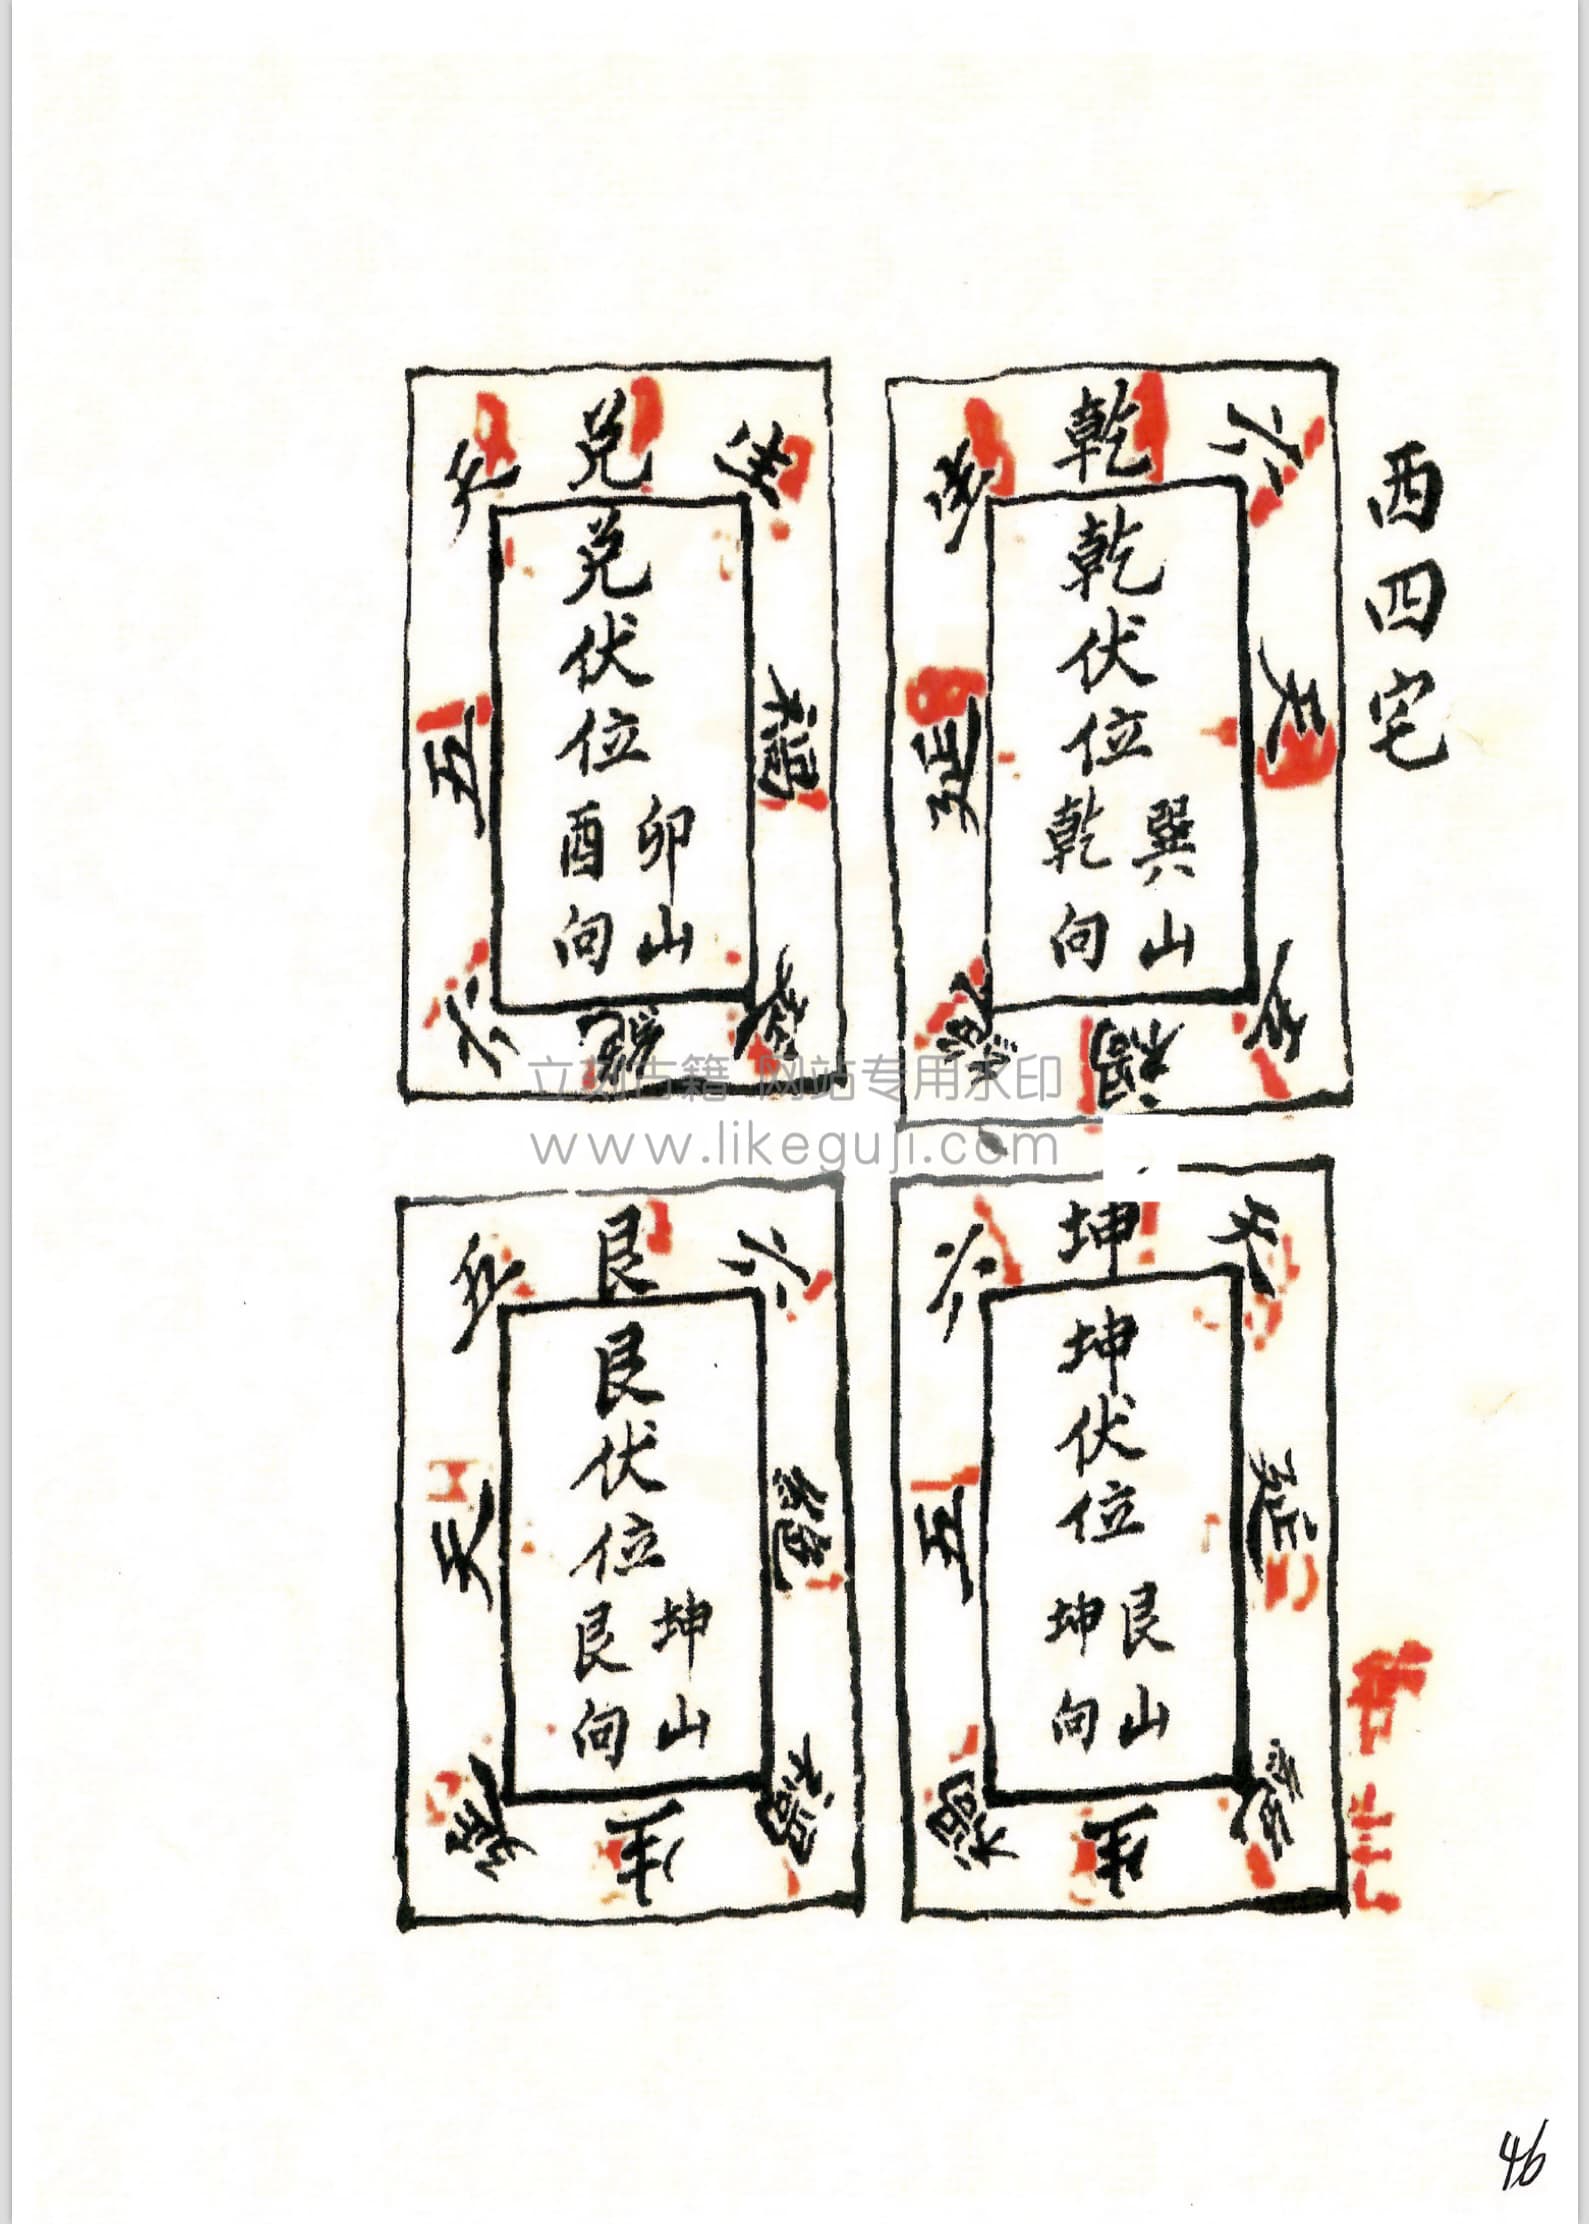 西四宅
乾
六
天
五
禍
絕
延
生
乾伏位
巽山
乾向
坤
天
延
絕
生
禍
五
六
坤伏位
艮山
坤向
兌
生
禍
延
絕
六
五
天
兌伏位
卯山
酉向
艮
六
絕
禍
生
延
天
五
艮伏位
坤山
艮向
立刻古籍 网站专用水印
www.likeguji.com
46